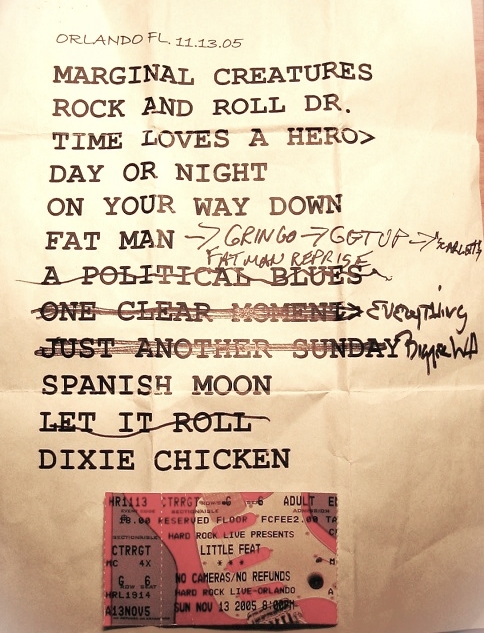 ORLANDO FL. 11.13.05
MARGINAL CREATURES
ROCK AND ROLL DR.
TIME LOVES A HERO>
DAY OR NIGHT
ON YOUR WAY DOWN
FAT MAN → GRINGO → GET UP →
FATMAN REPRISE
A POLITICAL BLUES
ONE CLEAR MOMENT> EVERYTHING
JUST ANOTHER SUNDAY
SPANISH MOON
LET IT ROLL
DIXIE CHICKEN
HR1113 CTRRGT G 6 ADULT
EVENT CODE SECTION/AISLE ADMISSION
RESERVED FLOOR FCFEE2.00
SECTION/AISLE HARD ROCK LIVE PRESENTS
CTRRGT LITTLE FEAT
MC 4X * * *
G 6 NO CAMERAS/NO REFUNDS
HRL1914 HARD ROCK LIVE-ORLANDO
A13NOV5 SUN NOV 13 2005 8:00PM